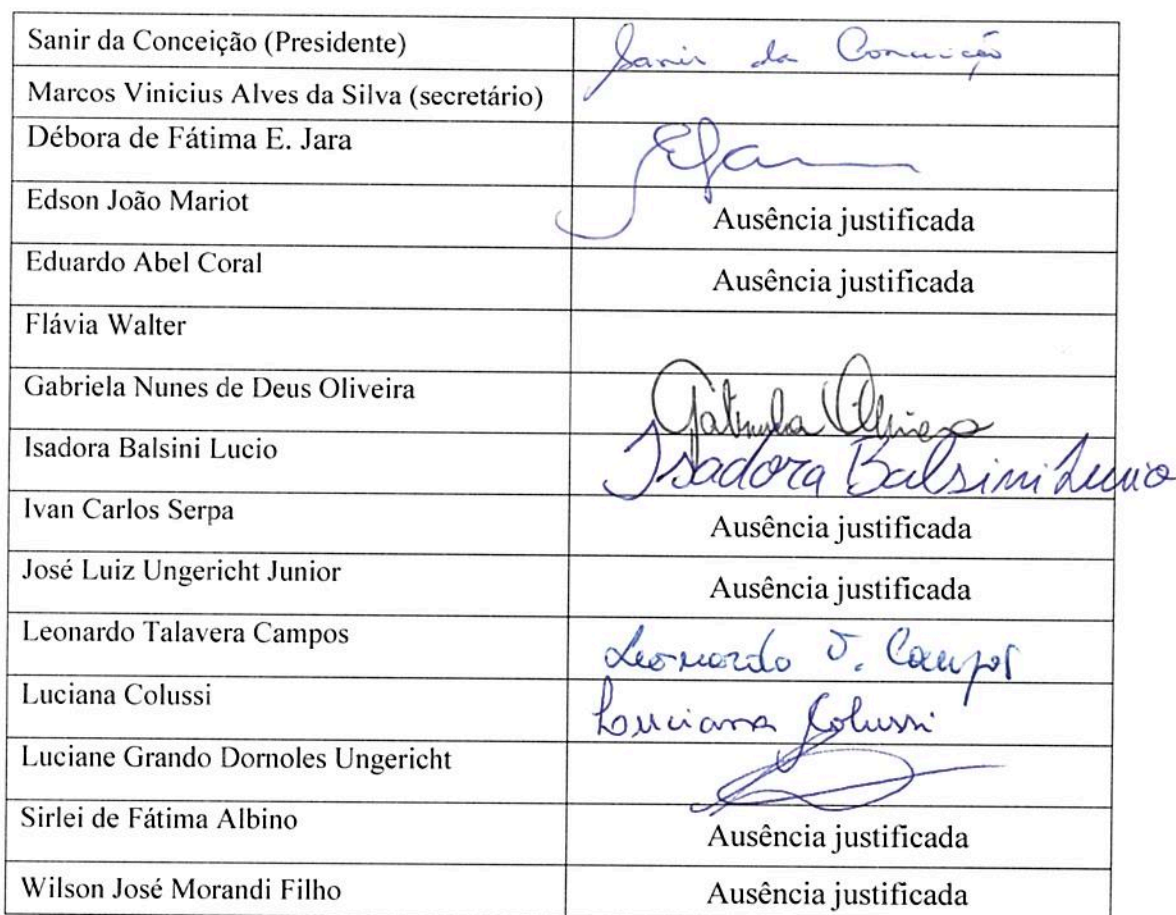 Sanir da Conceição (Presidente) Sanir da Conceição
Marcos Vinicius Alves da Silva (secretário)
Débora de Fátima E. Jara
Edson João Mariot Ausência justificada
Eduardo Abel Coral Ausência justificada
Flávia Walter
Gabriela Nunes de Deus Oliveira Gabriela Oliveira
Isadora Balsini Lucio Isadora Balsini Lucio
Ivan Carlos Serpa Ausência justificada
José Luiz Ungericht Junior Ausência justificada
Leonardo Talavera Campos Leonardo T. Campos
Luciana Colussi Luciana Colussi
Luciane Grando Dornoles Ungericht
Sirlei de Fátima Albino Ausência justificada
Wilson José Morandi Filho Ausência justificada